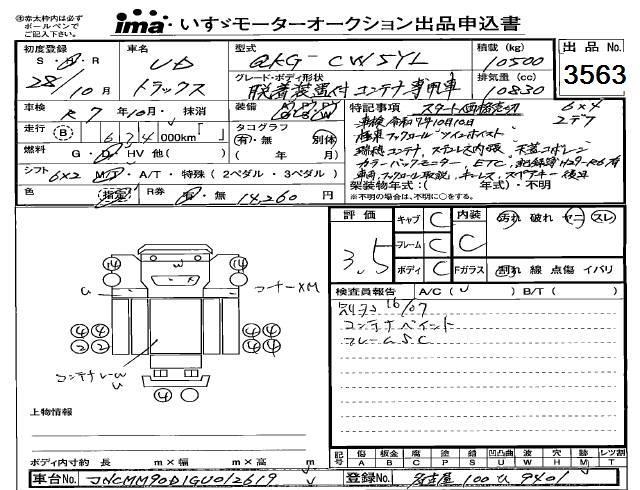 ㊟赤太枠内は必ず
ボールペンで
ご記入下さい。
ima いすゞモーターオークション出品申込書
初度登録 車名 型式 積載 (kg) 出品No.
S・H・R UD QKG-CW5YL 10500 3563
28/10月 トラックス グレード・ボディ形状 脱着装置付コンテナ専用車 排気量(cc) 10830
車検 R7年10月 抹消 装備 特記事項 スタート価格売切 6×4
走行 Ⓑ 634 000km「 」 タコグラフ 有・無 別体 車検令和7年10月10日 2デフ
燃料 G・D・HV 他( ) ( 年 月) 極東フックロール ツインホイスト
コンテナ、ステンレス内張
カラーバックモニター、ETC
シフト 6×2 MT・A/T・特殊(2ペダル・3ペダル) フックロール取説、キーレス、スペアキー
架装物年式:( 年式)・不明
色 指定 R券 有・無 14,260円 ※不明の場合は、不明に○をする。
評価 3.5 キャブ C 内装 C 汚れ 破れ ヤニ スレ
フレーム C
ボディ C Fガラス 割れ 線 点傷 イバリ
検査員報告 A/C( U ) B/T( )
16/07
コンテナペイント
フレームSC
⑭ ⑭
U コーナーXM
④④ ④④
②② ②②
コンテナ
U
④
上物情報
ボディ内寸約 長 m× 幅 m× 高 m
記号 傷A 板金B 腐C 歪P 塗S 錆 凹凸曲U 波W 穴H 跡M レツ割T
車台No. JNCMM90D1GU012619 登録No. 名古屋 100 ひ 9401